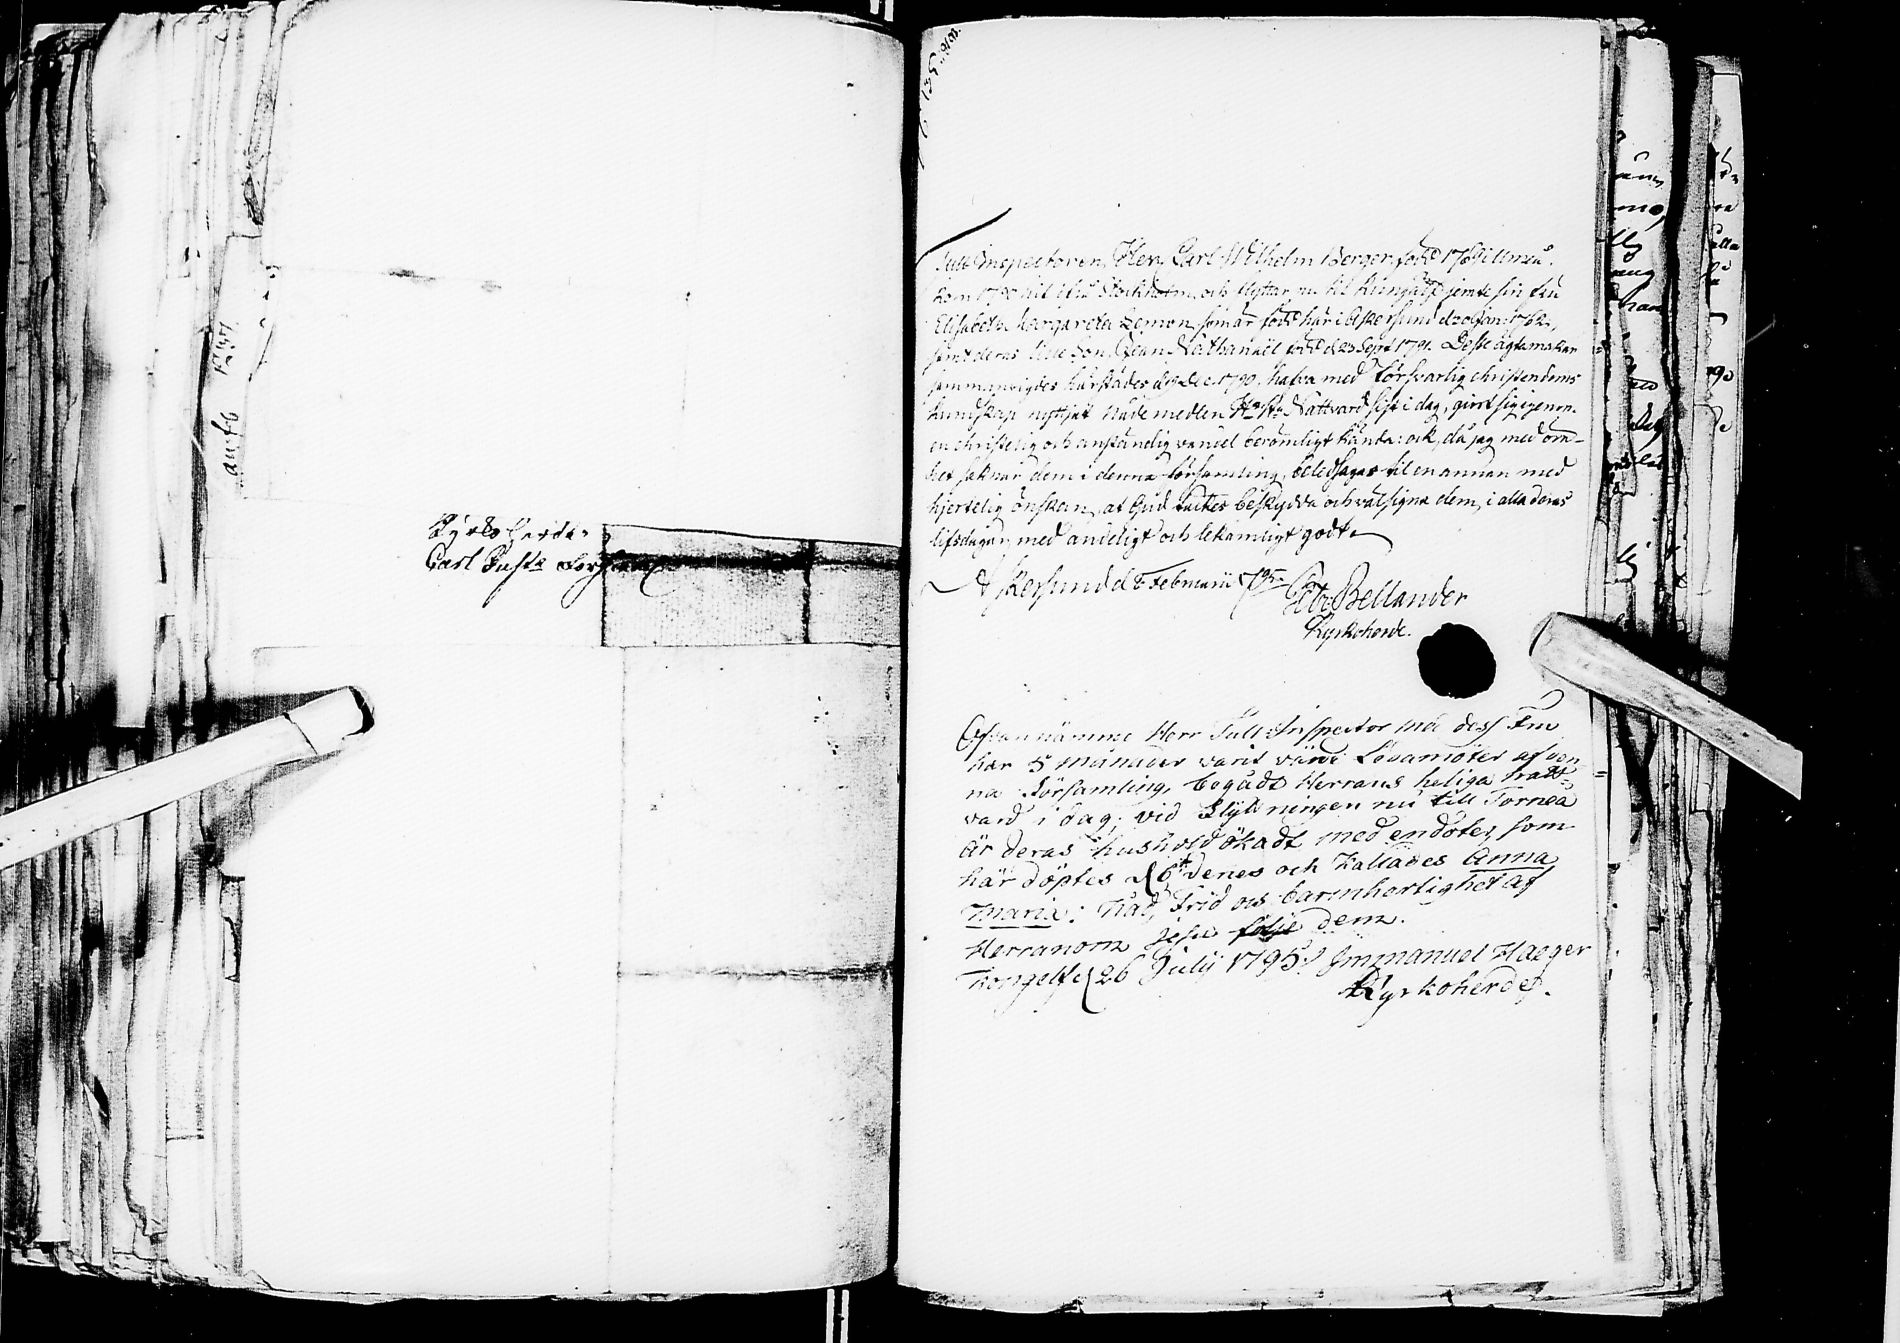 Kyrko Herde
Carl Gust:
Tull-Inspectoren, Herr Carl Wilhelm Berger, född
kom 1790 hit ifrå Stockholm, och flyttar nu til Kungälf jemte sin fru
Elisabeth Margareta Lemon, som är född här i Askersund d. 20 Jan. 1762,
samt deras lille son, Jean Nathanaël född d. 23 Sept 1791. Desse ägta makar
sammanvigdes härstädes d. 19 Dec. 1790. hafva med försvarlig christendoms
kundskap nyttjat nådemedlen, Hrs. Nattvard sist i dag, giort sig igenom
en christelig och anständig vandel berömligt kända: ock, då jag med öm-
het saknar dem i denna församling, beledsagas til en annan med
hjertelig önskan, at Gud täckes beskydda och välsigna dem, i alla deras
lifsdagar, med andeligt och lekamligt godt.
Askersund d. 8 Februarii 1795.
Bellander
Kyrkoherde.
Ofvannämnde Herr Tull-Inspector med dess Fru
har 5 månader varit värde Ledamöter af den-
na Församling, begådt Herrans heliga Natt-
vard i dag; vid Flyttningen nu till Torneå
är deras hushold ökadt med en doter, som
här döptes d 6 denes och kallades Anna
Maria: Nåd, Frid och barmhertighet af
Herranom Jesu följe dem.
Kongelf d 26 Julij 1795. Immanuel Haeger
Kyrkoherde.